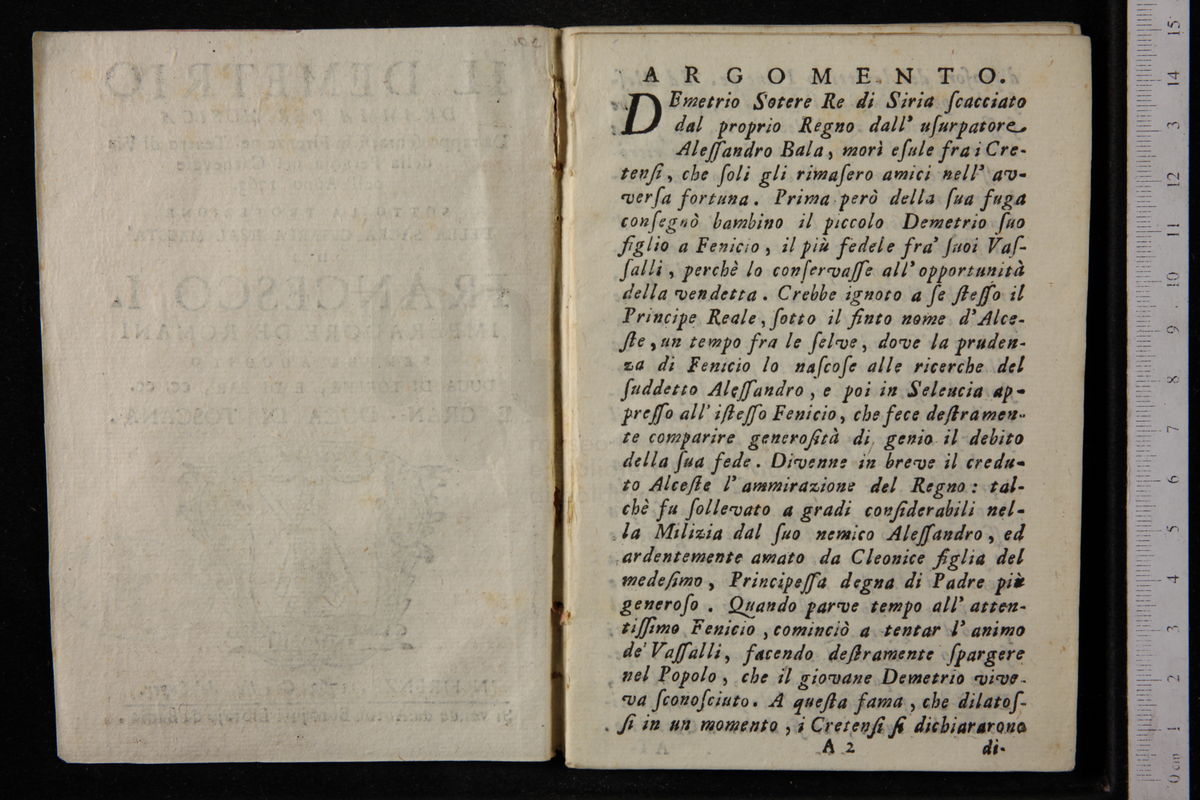 ARGOMENTO.
DEmetrio Sotere Re di Siria ſcacciato
dal proprio Regno dall' uſurpatore
Aleſſandro Bala, morì eſule fra i Cre-
tenſi, che ſoli gli rimaſero amici nell' av-
verſa fortuna. Prima però della ſua fuga
conſegnò bambino il piccolo Demetrio ſuo
figlio a Fenicio, il più fedele fra' ſuoi Vaſ-
ſalli, perchè lo conſervaſſe all' opportunità
della vendetta. Crebbe ignoto a ſe ſteſſo il
Principe Reale, ſotto il finto nome d'Alce-
ſte, un tempo fra le ſelve, dove la pruden-
za di Fenicio lo naſcoſe alle ricerche del
ſuddetto Aleſſandro, e poi in Seleucia ap-
preſſo all' iſteſſo Fenicio, che fece deſtramen-
te comparire generoſità di genio il debito
della ſua fede. Divenne in breve il credu-
to Alceſte l' ammirazione del Regno: tal-
chè fu ſollevato a gradi conſiderabili nel-
la Milizia dal ſuo nemico Aleſſandro, ed
ardentemente amato da Cleonice figlia del
medeſimo, Principeſſa degna di Padre più
generoſo. Quando parve tempo all' atten-
tiſſimo Fenicio, cominciò a tentar l' animo
de' Vaſſalli, facendo deſtramente ſpargere
nel Popolo, che il giovane Demetrio vive-
va ſconoſciuto. A queſta fama, che dilatoſ-
ſi in un momento, i Cretenſi ſi dichiararono
A 2 di-
15
14
3
12
11
10
9
8
7
6
5
4
3
2
1
0 cm